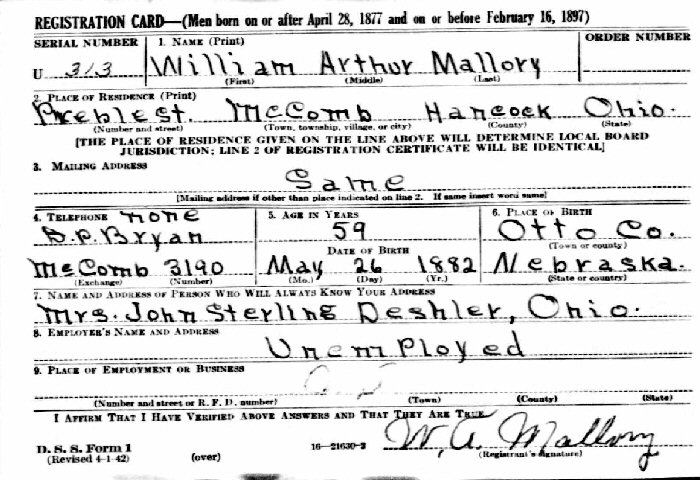 REGISTRATION CARD—(Men born on or after April 28, 1877 and on or before February 16, 1897)
SERIAL NUMBER 1. NAME (Print) ORDER NUMBER
U 313 William Arthur Mallory
(First) (Middle) (Last)
2. PLACE OF RESIDENCE (Print)
Preble St. McComb Hancock Ohio.
(Number and street) (Town, township, village, or city) (County) (State)
[THE PLACE OF RESIDENCE GIVEN ON THE LINE ABOVE WILL DETERMINE LOCAL BOARD
JURISDICTION; LINE 2 OF REGISTRATION CERTIFICATE WILL BE IDENTICAL]
3. MAILING ADDRESS
Same
[Mailing address if other than place indicated on line 2. If same insert word same]
4. TELEPHONE none 5. AGE IN YEARS 6. PLACE OF BIRTH
B.P. Bryan 59 Otto Co.
DATE OF BIRTH (Town or county)
McComb 3190 May 26 1882 Nebraska.
(Exchange) (Number) (Mo.) (Day) (Yr.) (State or country)
7. NAME AND ADDRESS OF PERSON WHO WILL ALWAYS KNOW YOUR ADDRESS
Mrs. John Sterling Deshler, Ohio.
8. EMPLOYER'S NAME AND ADDRESS
Unemployed
9. PLACE OF EMPLOYMENT OR BUSINESS
(Number and street or R. F. D. number) (Town) (County) (State)
I AFFIRM THAT I HAVE VERIFIED ABOVE ANSWERS AND THAT THEY ARE TRUE.
D. S. S. Form 1
(Revised 4-1-42) (over) 16—21630-2 W. A. Mallory
(Registrant's signature)